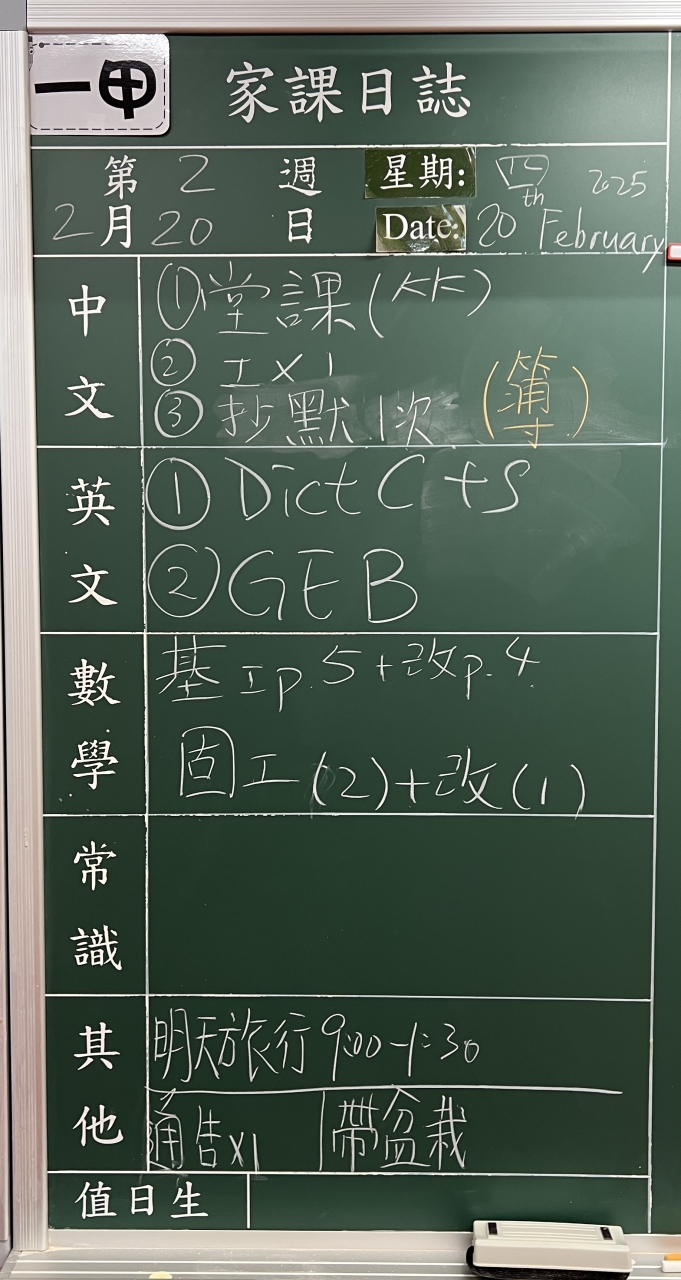 一甲
家課日誌
第 2 週 星期: 四 2025
2月20日 Date: 20th February
中文
①堂課(
② 工×1
③ 抄默1次 (簿)
英文
① Dict C + S
② GE B
數學
基工p.5+改p.4
固工(2)+改(1)
常識
其他
明天旅行9:00-1:30
通告×1 帶盆栽
值日生